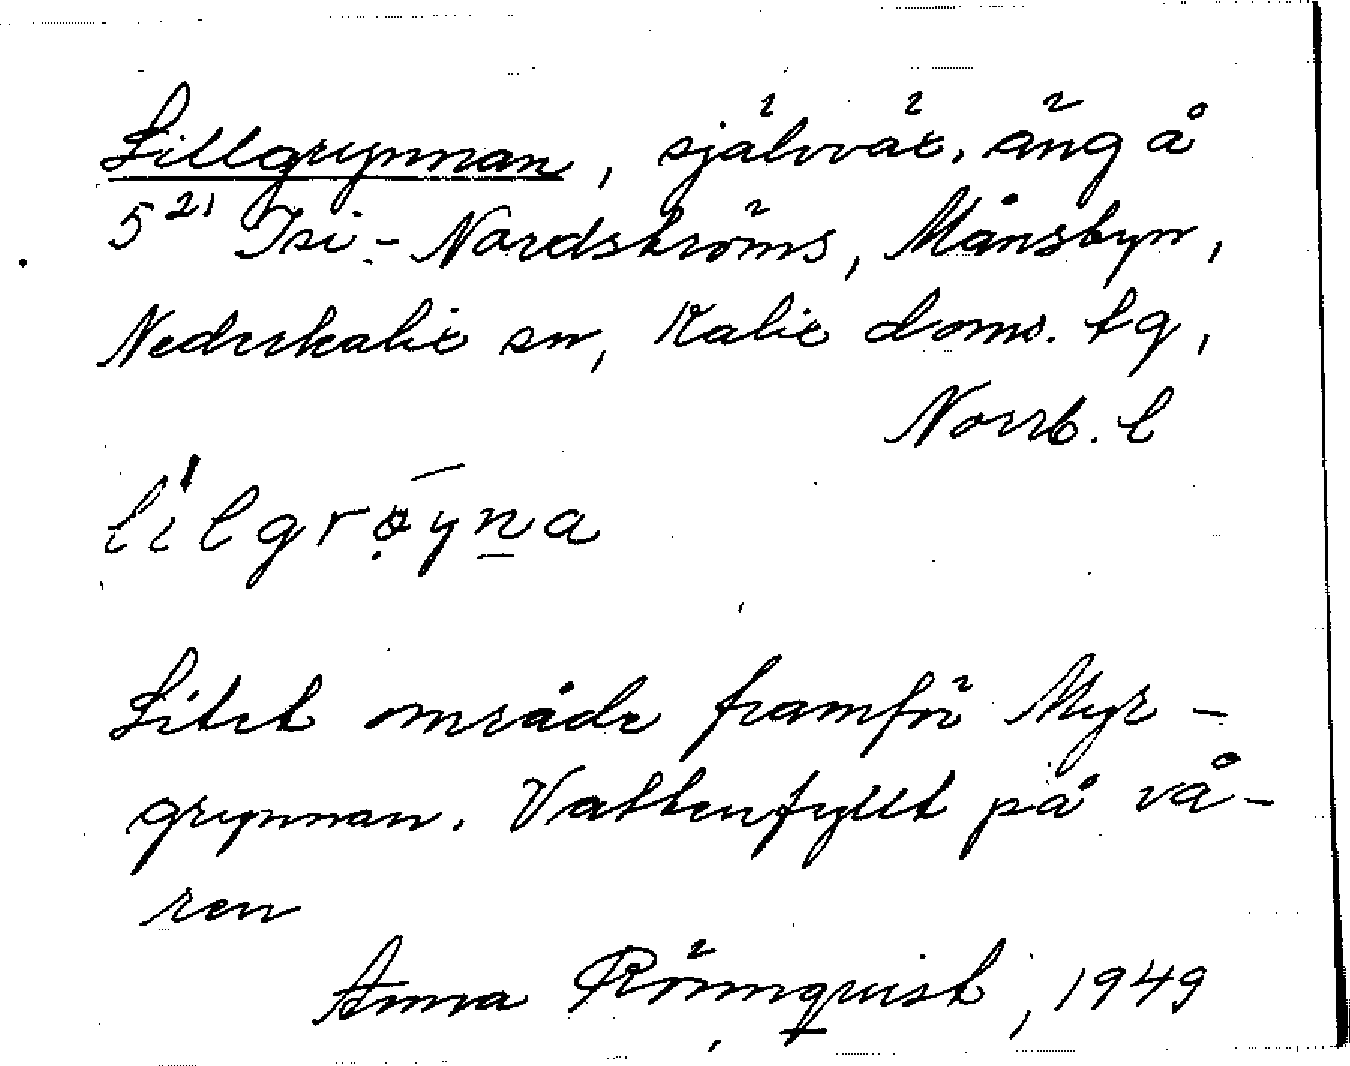 Lillgrynnan, självväx. äng å
5²¹ Isi-Nordströms, Månsbyn,
Nederkalix sn, Kalix doms. tg,
Norrb. l
lilgrøyna
Litet område framför Myr-
grynnan. Vattenfyllt på vå-
ren
Anna Rönnquist, 1949